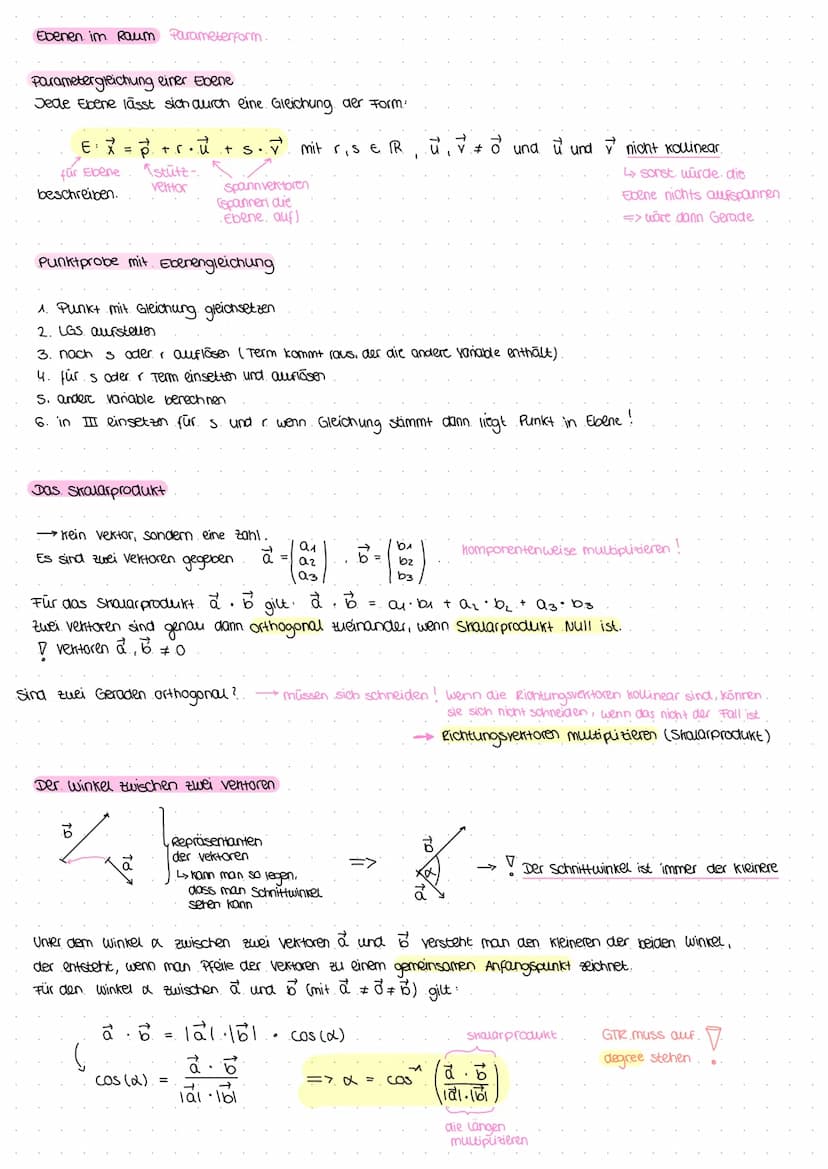 Ebenen im Raum Parameterform
Parametergleichung einer Ebene
Jede Ebene lässt sich durch eine Gleichung der Form:
E: x⃗ = p⃗ + r · u⃗ + s · v⃗ mit r, s ∈ ℝ, u⃗, v⃗ ≠ o⃗ und u⃗ und v⃗ nicht kollinear
für Ebene stütz- ↳ sonst würde die
beschreiben. vektor spannvektoren Ebene nichts aufspannen
(spannen die => wäre dann Gerade
Ebene auf)
Punktprobe mit Ebenengleichung
1. Punkt mit Gleichung gleichsetzen
2. LGS aufstellen
3. nach s oder r auflösen (Term kommt raus, der die andere Variable enthält)
4. für s oder r Term einsetzen und auflösen
5. andere Variable berechnen
6. in III einsetzen für s und r wenn Gleichung stimmt dann liegt Punkt in Ebene!
Das Skalarprodukt
→ kein Vektor, sondern eine Zahl.
Es sind zwei Vektoren gegeben a⃗ = (a1 a2 a3), b⃗ = (b1 b2 b3) komponentenweise multiplizieren!
Für das Skalarprodukt a⃗ · b⃗ gilt: a⃗ · b⃗ = a1 · b1 + a2 · b2 + a3 · b3
Zwei Vektoren sind genau dann orthogonal zueinander, wenn Skalarprodukt Null ist.
! Vektoren a⃗, b⃗ ≠ 0
Sind zwei Geraden orthogonal? → müssen sich schneiden! wenn die Richtungsvektoren kollinear sind, können
sie sich nicht schneiden, wenn das nicht der Fall ist
→ Richtungsvektoren multiplizieren (Skalarprodukt)
Der Winkel zwischen zwei Vektoren
b⃗ a⃗ Repräsentanten
der Vektoren => b⃗ α a⃗ → ! Der Schnittwinkel ist immer der kleinere
↳ kann man so legen,
dass man Schnittwinkel
sehen kann
Unter dem Winkel α zwischen zwei Vektoren a⃗ und b⃗ versteht man den kleineren der beiden Winkel,
der entsteht, wenn man Pfeile der Vektoren zu einem gemeinsamen Anfangspunkt zeichnet.
Für den Winkel α zwischen a⃗ und b⃗ (mit a⃗ ≠ o⃗ ≠ b⃗) gilt:
a⃗ · b⃗ = |a⃗| · |b⃗| · cos(α) Skalarprodukt GTR muss auf !
degree stehen
cos(α) = (a⃗ · b⃗) / (|a⃗| · |b⃗|) => α = cos⁻¹ ((a⃗ · b⃗) / (|a⃗| · |b⃗|))
die Längen
multiplizieren